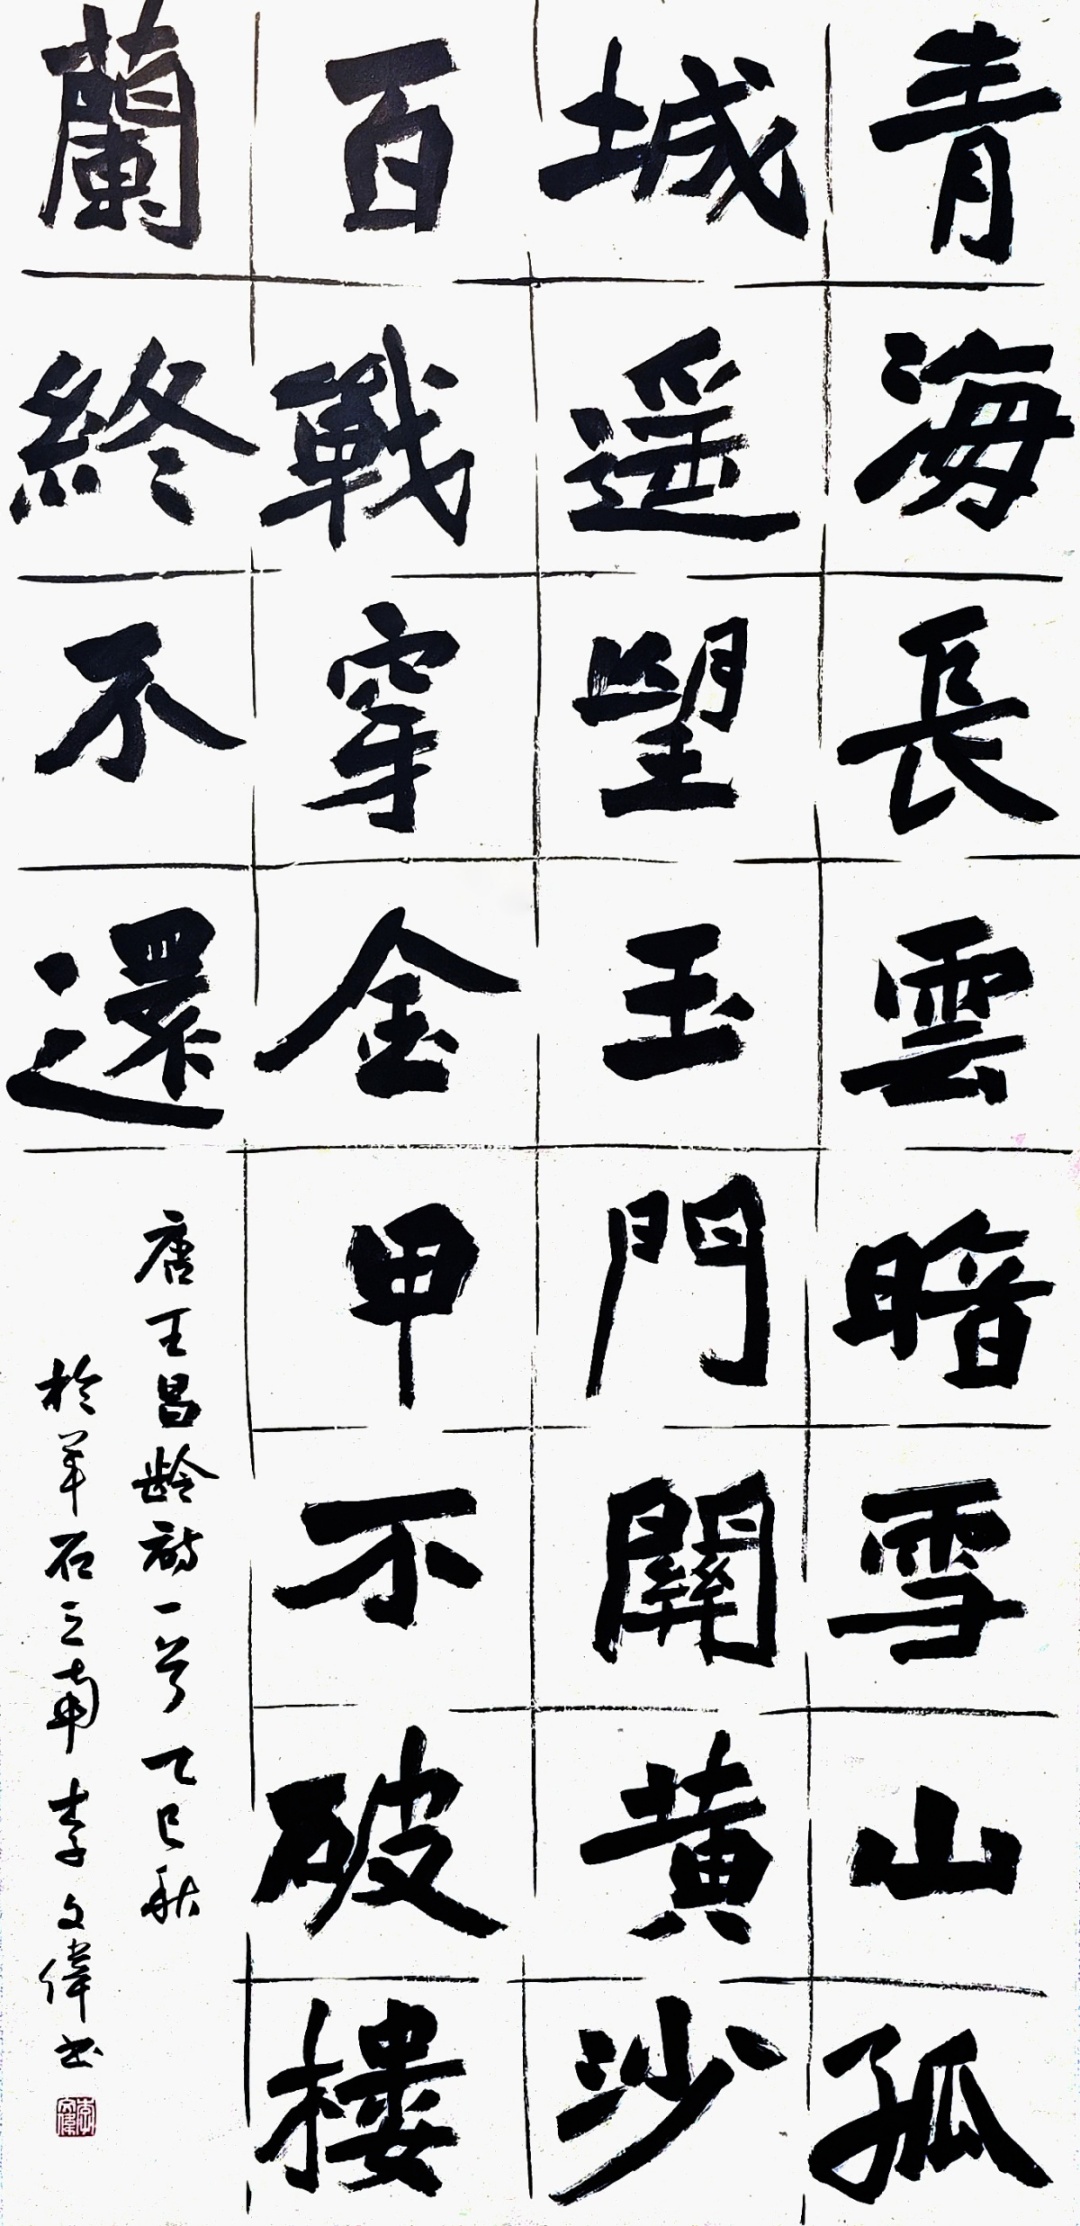 青海長雲暗雪山孤
城遥望玉門關黄沙
百戰穿金甲不破樓
蘭終不還
唐王昌龄詩一首乙巳秋
於羊石之南李文偉书
李文偉